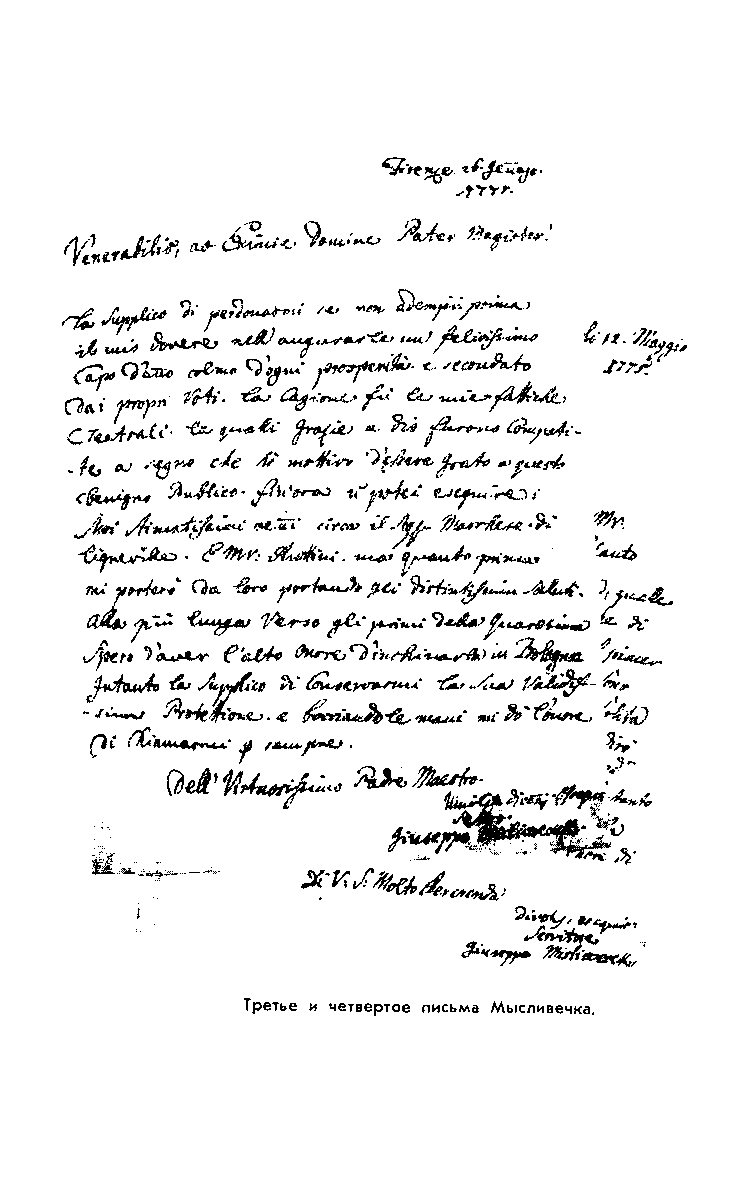 Firenze 26. Genajo.
1775.
Venerabilis, ac Eximie Domine Pater Magister!
La Supplico di perdonarmi se non adempii prima
il mio dovere nell'augurarle un felicissimo
Capo d'anno colmo d'ogni prosperità e secondato
dai propri Voti. La Cagione fù le mie fattiche
Teatrali. le qualli grazie a dio furono Compati-
-te a segno che hò mottivo d'essere grato a questo
benigno Publico. finora potei eseguire i
Suoi Stimatissimi circa il Marchese di
Ligneville. E Mr. Ruttini. ma quanto prima
mi porterò da loro portando gli distintissimi saluti.
Alla più lunga Verso gli primi della Quaresima
Spero d'aver l'alto onore d'inchinarla in Bologna
Intanto la Supplico di Conservarmi la Sua Validis-
-sima Protettione. e bacciandole le mani mi dò l'onore
di Chiamarmi sempre.
Dell' Virtuosissimo Padre Maestro.
Giuseppe
li 12. Maggio
1775.
Mr.
quale
di
tanto
di
Di V. S. Molto Reverenda
Servitore
Giuseppe Misliwecek
Третье и четвертое письма Мысливечка.